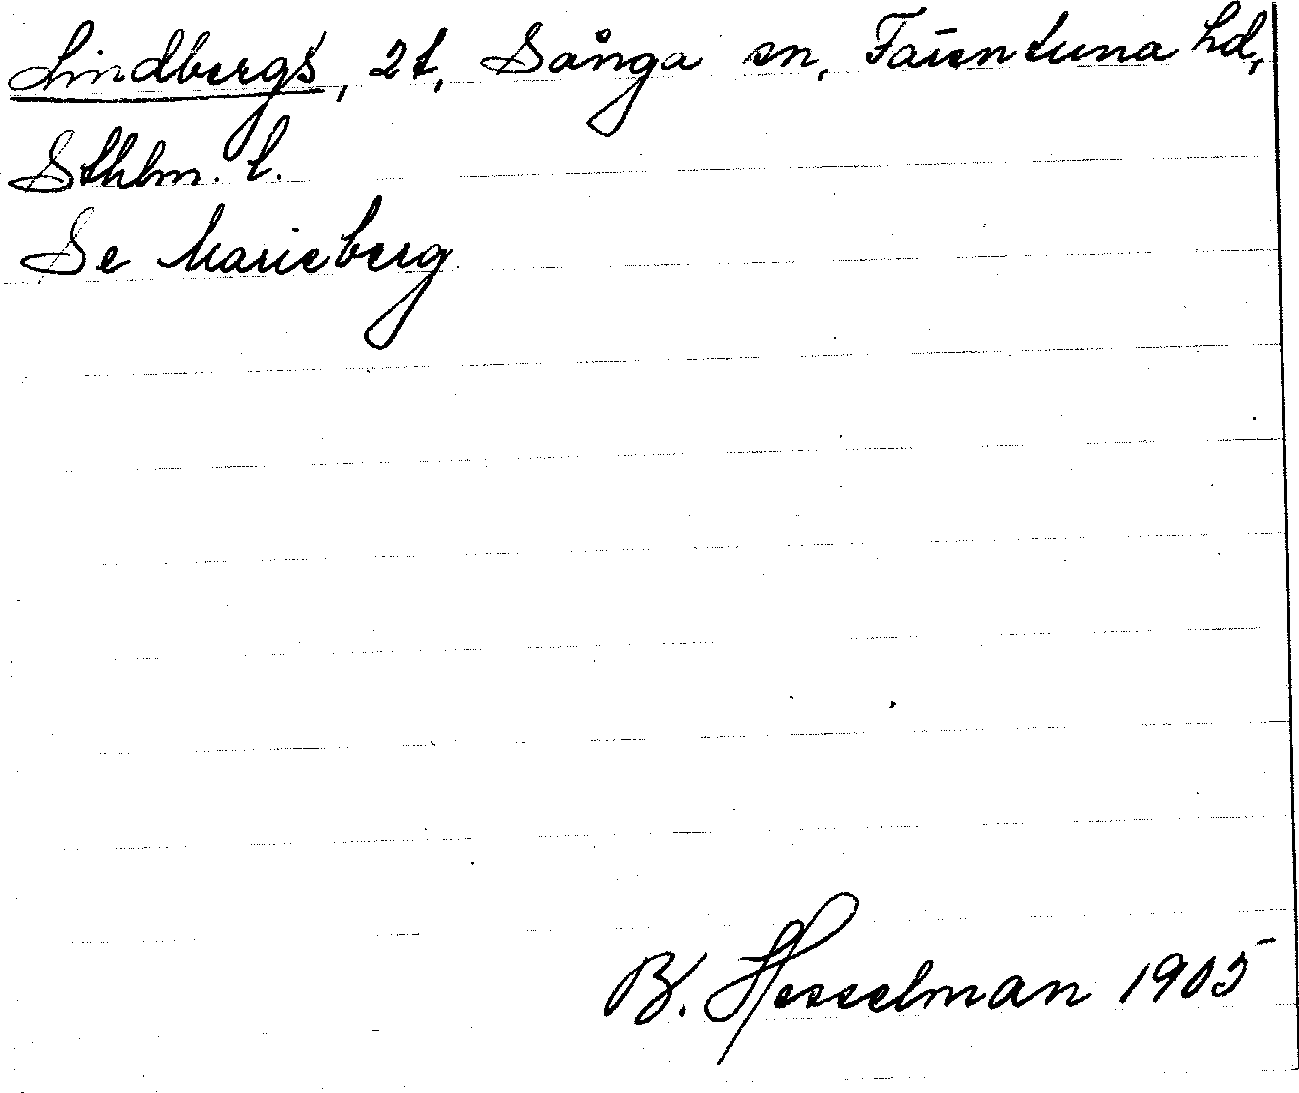 Lindbergs, 2t, Sånga sn, Färentuna hd,
Sthlm. l.
Se Marieberg
B. Hesselman 1905